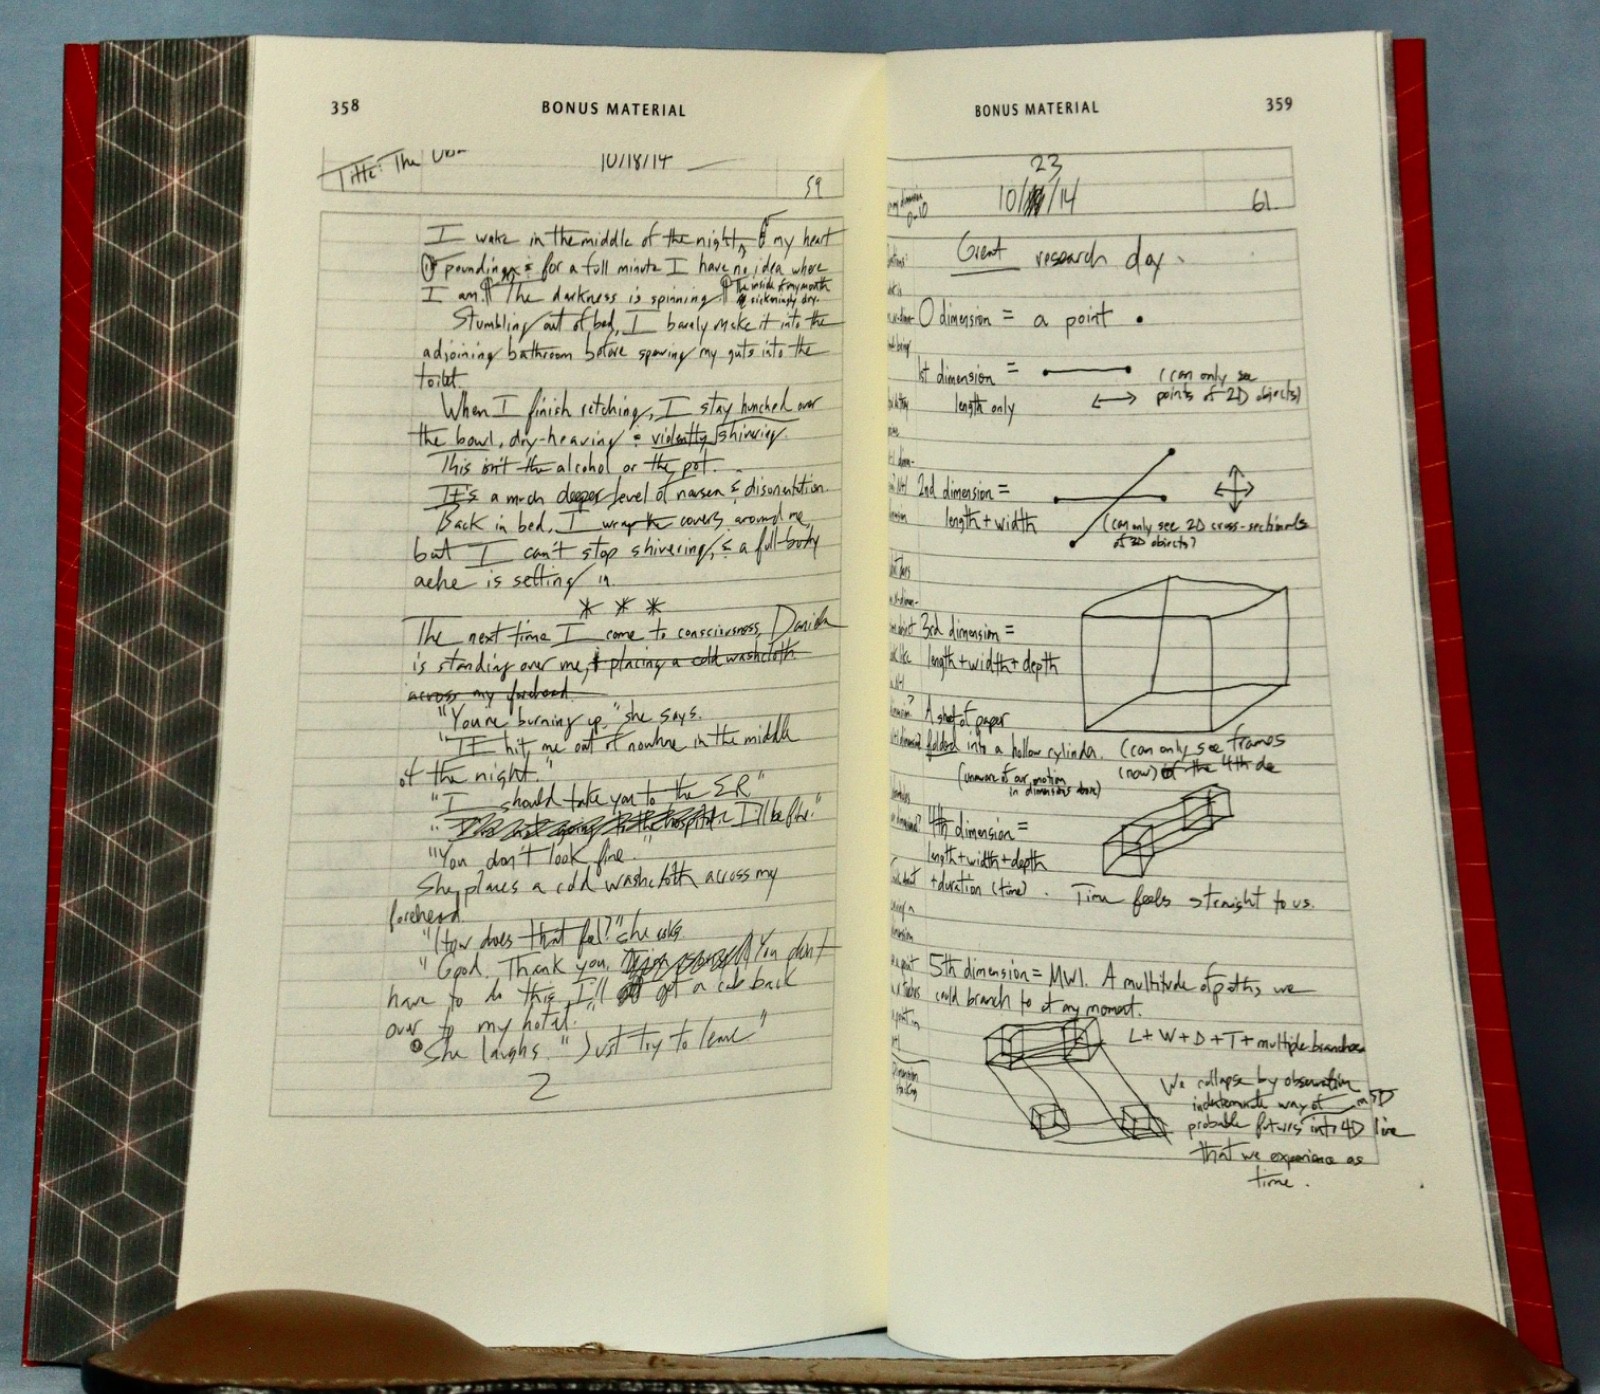 358
BONUS MATERIAL
Title: The
10/18/14
59
I wake in the middle of the night, my heart
pounding & for a full minute I have no idea where
I am. The darkness is spinning. The inside of my mouth
sickeningly dry.
Stumbling out of bed, I barely make it into the
adjoining bathroom before spewing my guts into the
toilet.
When I finish retching, I stay hunched over
the bowl, dry-heaving & violently shivering.
This isn't the alcohol or the pot.
It's a much deeper level of nausea & disorientation.
Back in bed, I wrap the covers around me,
but I can't stop shivering, & a full-body
ache is setting in.
* * *
The next time I come to consciousness, Daniela
is standing over me, & placing a cold washcloth
across my forehead
"You're burning up," she says.
"It hit me out of nowhere in the middle
of the night."
"I should take you to the ER"
" going to the hospital. I'll be fine."
"You don't look fine."
She places a cold washcloth across my
forehead.
"How does that feel?" she asks
"Good. Thank you. You don't
have to do this. I'll get a cab back
over to my hotel."
She laughs. "Just try to leave"
2
BONUS MATERIAL
359
23
10/ /14
61
0-10
Great research day.
0 dimension = a point
1st dimension =
length only
(can only see
points of 2D objects)
2nd dimension =
length + width
(can only see 2D cross-sections
of 3D objects?
3rd dimension =
length + width + depth
A sheet of paper
folded into a hollow cylinder.
(unaware of our motion
in dimensions above)
(can only see frames
(now) of the 4th de
4th dimension =
length + width + depth
+ duration (time).
Time feels straight to us.
5th dimension = MWI. A multitude of paths, we
could branch to at any moment.
L + W + D + T + multiple branches
We collapse by observation
indeterminate way of in 5D
probable futures into 4D line
that we experience as
time.